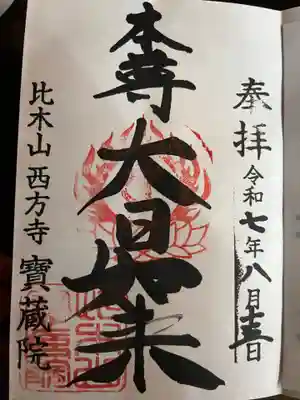 奉拝 令和七年八月十五日
本尊 大日如来
比木山 西方寺 寶蔵院